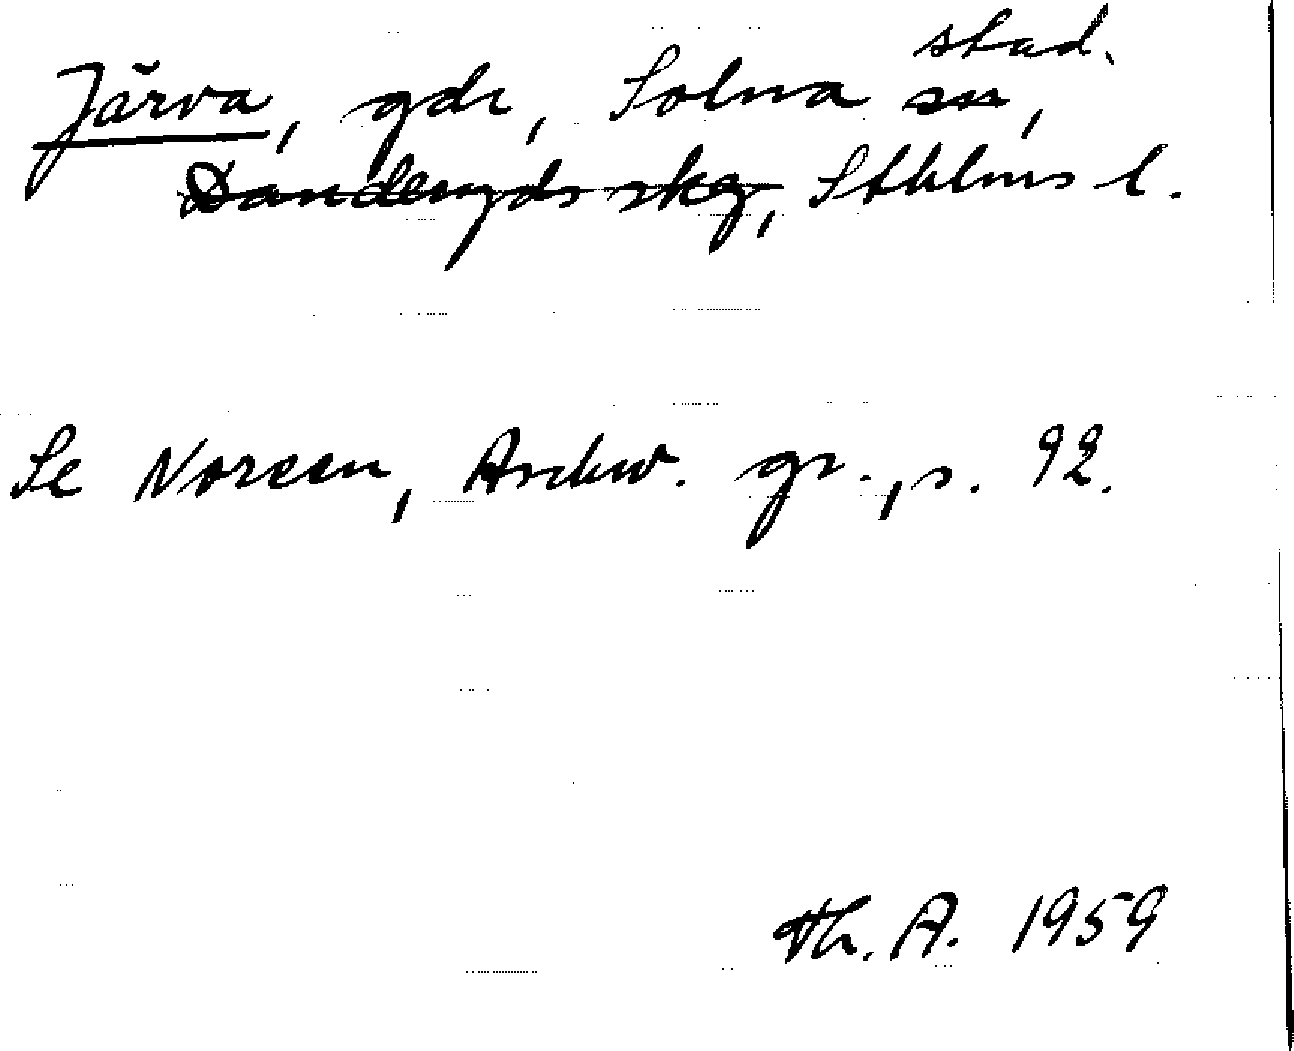 Järva, gdr, Solna sn, stad.
Danderyds skg, Sthlms l.
Se Noreen, Aschw. gr., s. 92.
Th. A. 1959